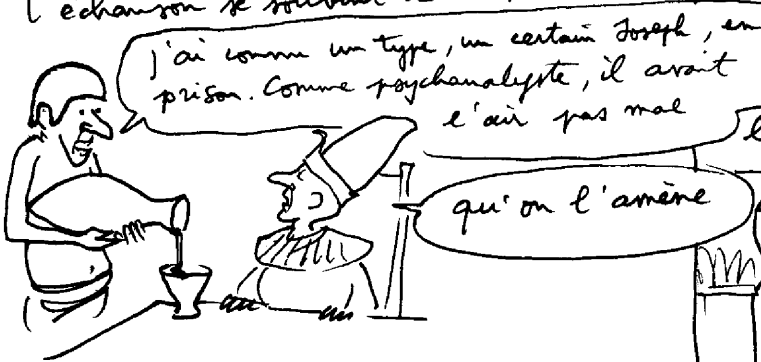 l'échanson se souvint
j'ai connu un type, un certain Joseph, en
prison. Comme psychanalyste, il avait
l'air pas mal
qu'on l'amène